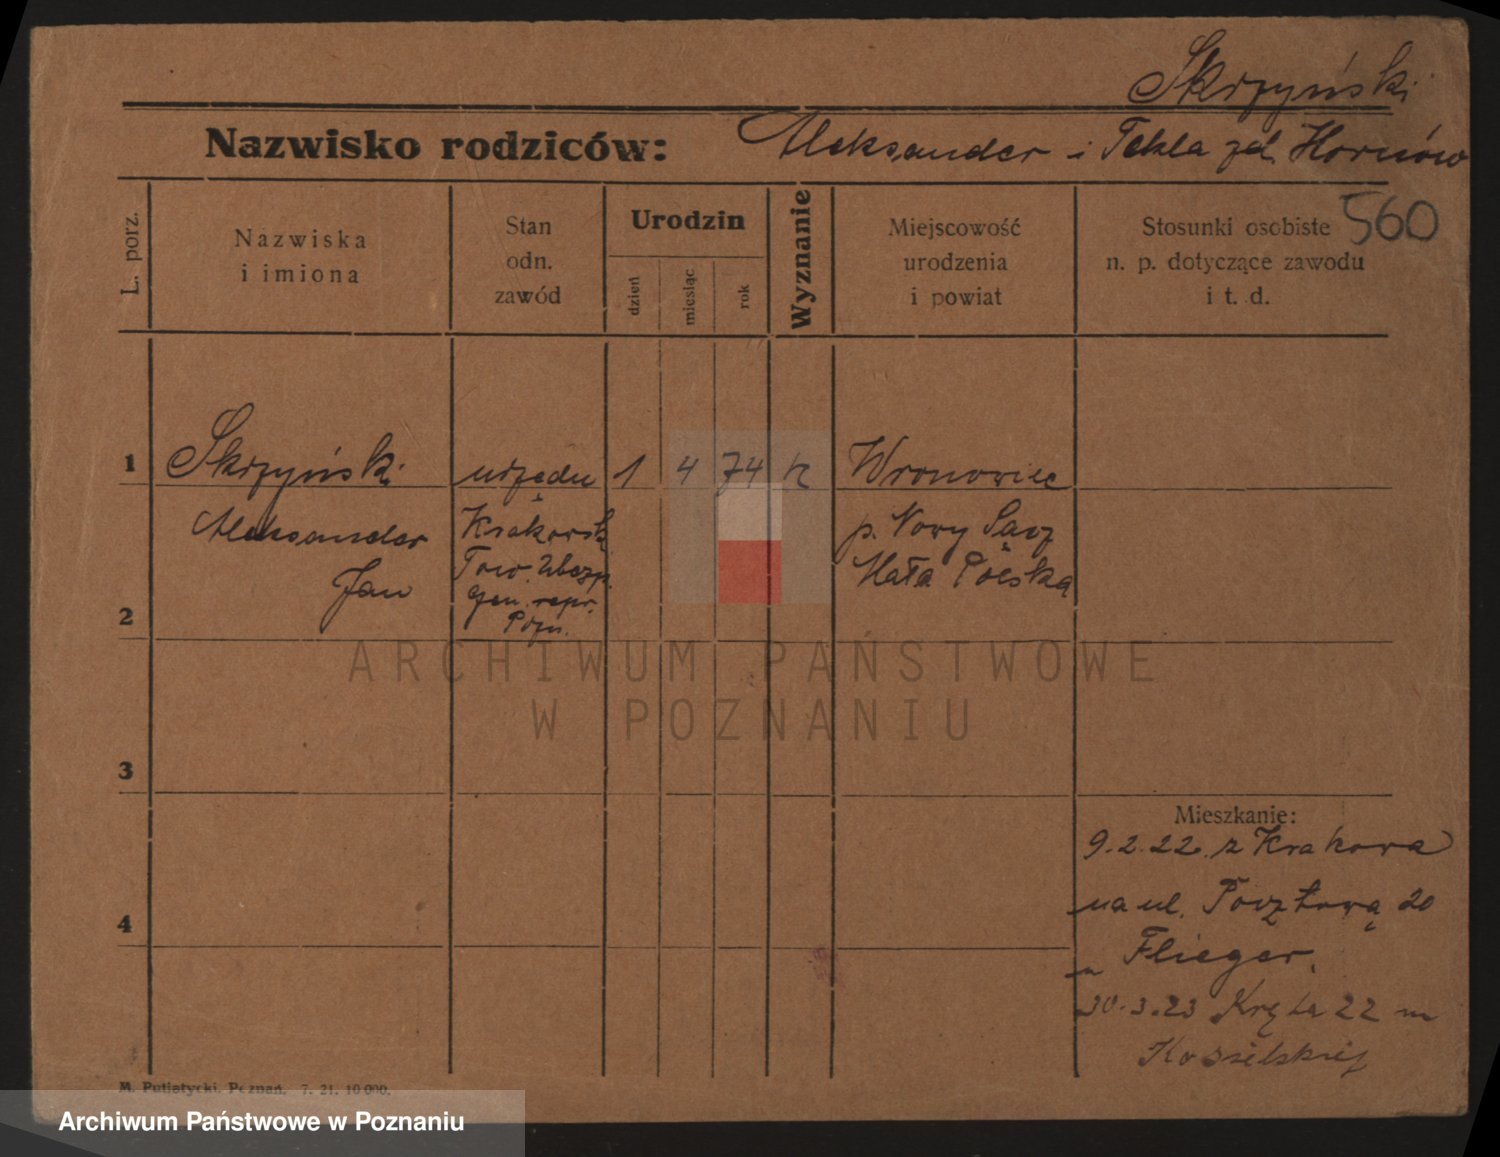 Skrzyński
Nazwisko rodziców: Aleksander i Tekla zd. Hornów
L. porz.
Nazwiska
i imiona
Stan
odn.
zawód
Urodzin
dzień
miesiąc
rok
Wyznanie
Miejscowość
urodzenia
i powiat
Stosunki osobiste
n. p. dotyczące zawodu
i t. d.
560
1 Skrzyński urzędn 1 4 74 k Wronowiec
Aleksander Krakowsk p. Nowy Sącz
Jan Tow. Ubezp. Mała Polska
2 gen. repr.
Pozn.
3
4
Mieszkanie:
9.2.22. z Krakowa
na ul. Pocztową 20
u Flieger.
30.3.23 Kręta 22
Kozielskiej
M. Putiatycki, Poznań. 7. 21. 10 000.
ARCHIWUM PAŃSTWOWE
W POZNANIU
Archiwum Państwowe w Poznaniu